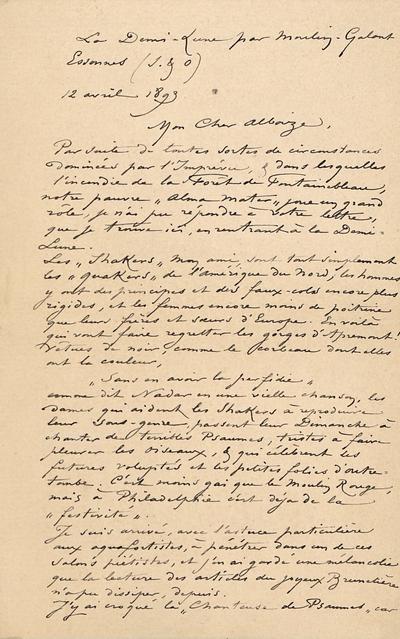 La Demi-Lune par Moulin-Galant
Essonnes (S. & O)
12 avril 1893
Mon Cher Albouze,
Par suite de toutes sortes de circonstances
dominées par l'Imprévu, & dans lesquelles
l'incendie de la Forêt de Fontainebleau,
notre pauvre „Alma Mater" joue un grand
rôle, je n'ai pu répondre à votre lettre,
que je trouve ici, en rentrant à la Demi-
Lune.
Les „Shakers" mon ami, sont tout simplement
les „Quakers" de l'amérique du Nord; les hommes
y ont des principes et des faux-cols encore plus
rigides, et les femmes encore moins de poitrine
que leurs frères et sœurs d'Europe. En voilà
qui vont faire regretter les gorges d'Apremont!
Vêtues de noir, comme le corbeau dont elles
ont la couleur,
„Sans en avoir la perfidie"
comme dit Nadar en une vieille chanson, les
dames qui aident les Shakers à reproduire
leur sous-genre, passent leur Dimanche à
chanter de terribles Psaumes, tristes à faire
pleurer les oiseaux, & qui célèbrent les
futures voluptés et les petites folies d'outre-
tombe. C'est moins gai que le Moulin Rouge,
mais à Philadelphie c'est déjà de la
„festivité".
Je suis arrivé, avec l'astuce particulière
aux aquafortistes, à pénétrer dans un de ces
salons piétistes, et j'en ai gardé une mélancolie
que la lecture des articles du joyeux Brunetière
n'a pu dissiper, depuis.
J'y ai croqué la „Chanteuse de Psaumes", car